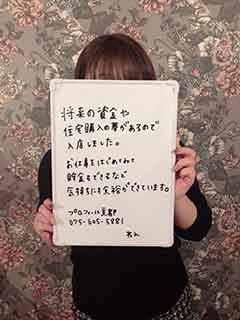 将来の資金や
住宅購入の夢があるので
入店しました。
お仕事をはじめてみて
貯金もできるなど
気持ちにも余裕ができています。
プロフィール京都
075-605-5881
れん